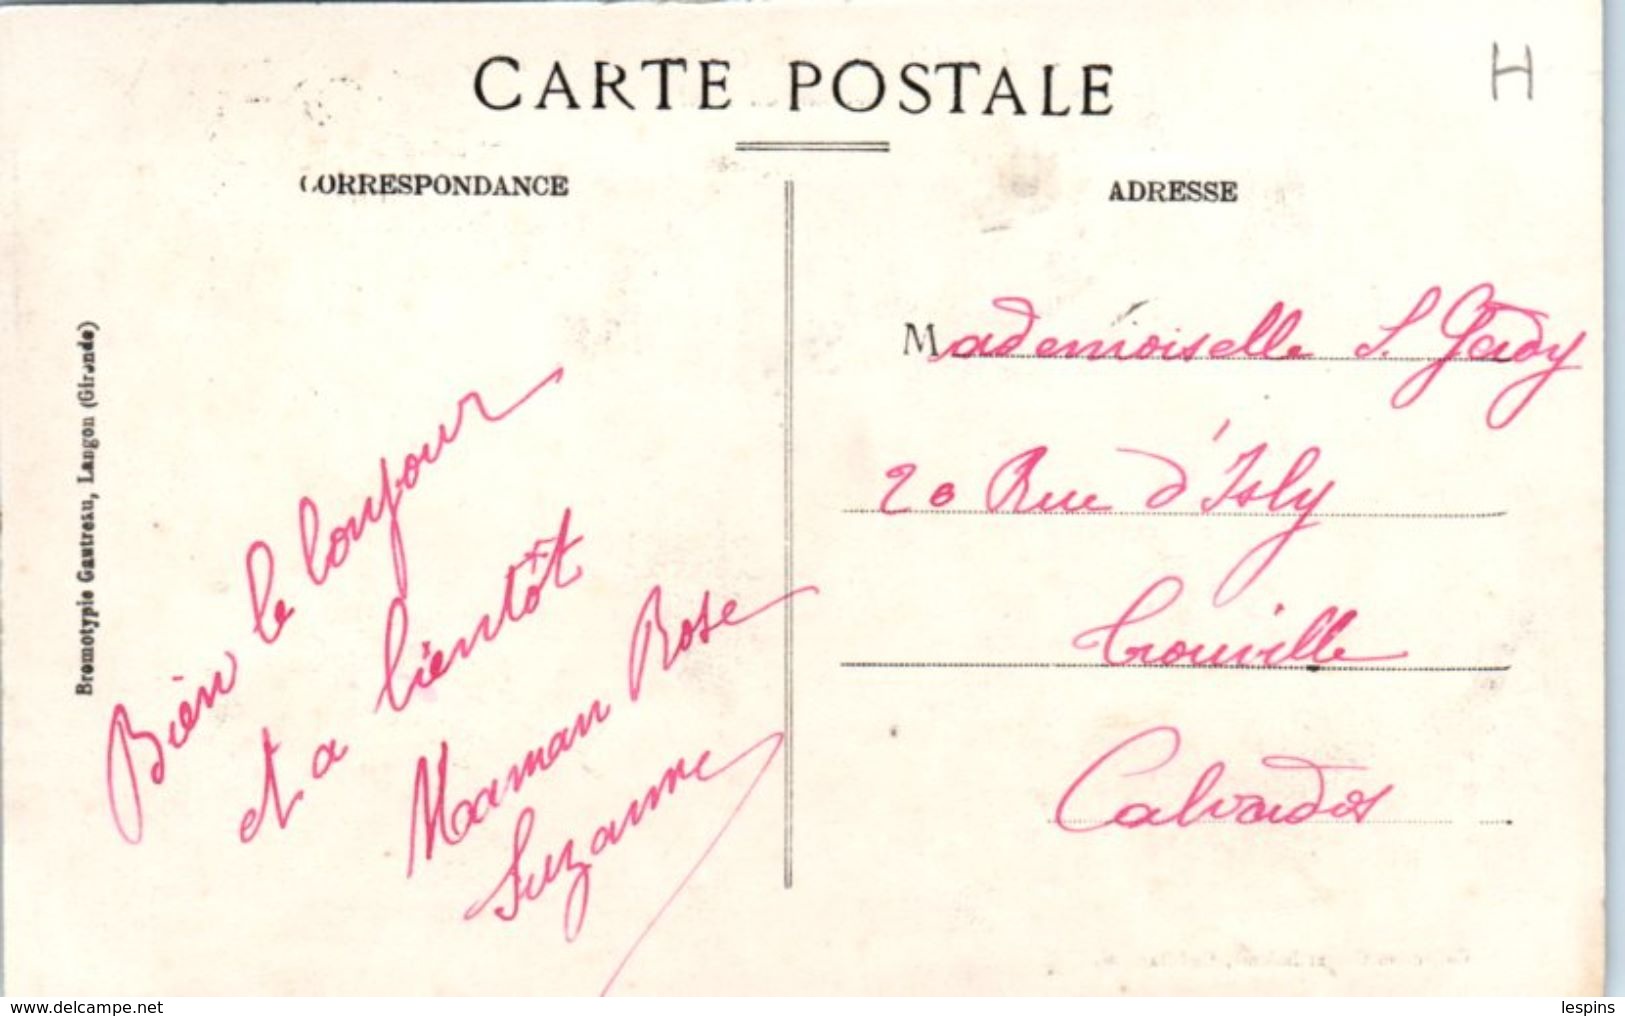 CARTE POSTALE
H
CORRESPONDANCE
ADRESSE
Bromotypie Gautreau, Langon (Gironde)
Bien le bonjour
et a bientôt
Maman Rose
Suzanne
Mademoiselle S. Gady
20 Rue d'Isly
Trouville
Calvados
www.delcampe.net
lespins